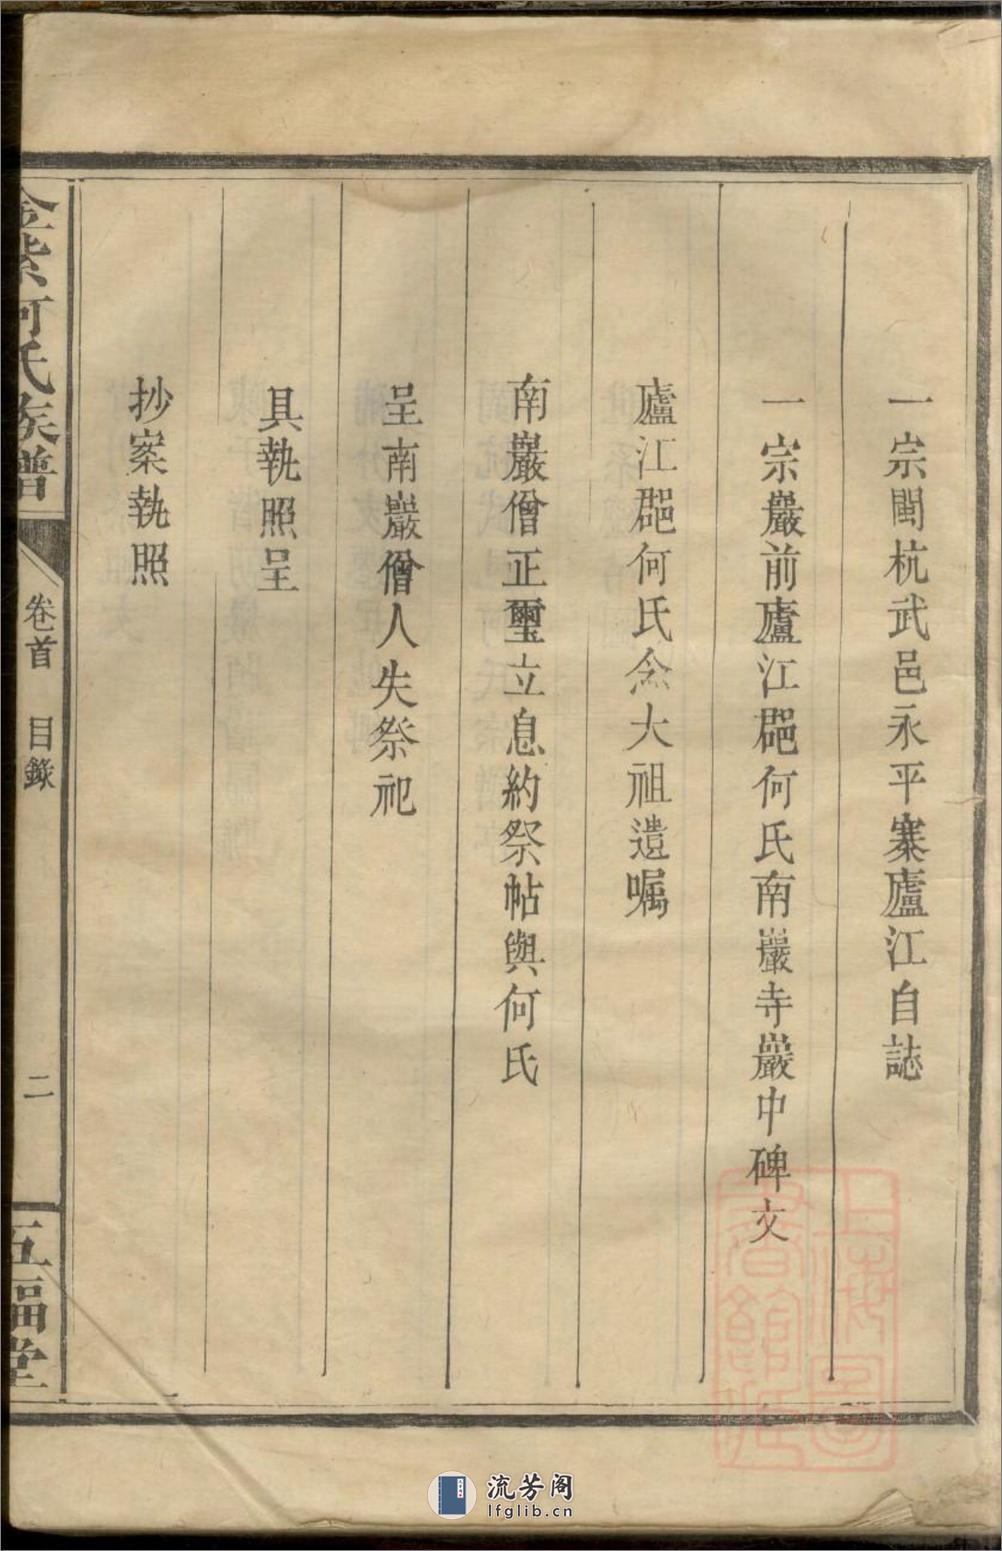 一宗閩杭武邑永平寨廬江自誌
一宗巖前廬江郡何氏南巖寺巖中碑文
廬江郡何氏念大祖遺囑
南巖僧正璽立息約祭帖與何氏
呈南巖僧人失祭祀
具執照呈
抄案執照
金紫何氏族譜
卷首 目錄
二
五福堂
上海圖書館藏
流芳阁
lfglib.cn